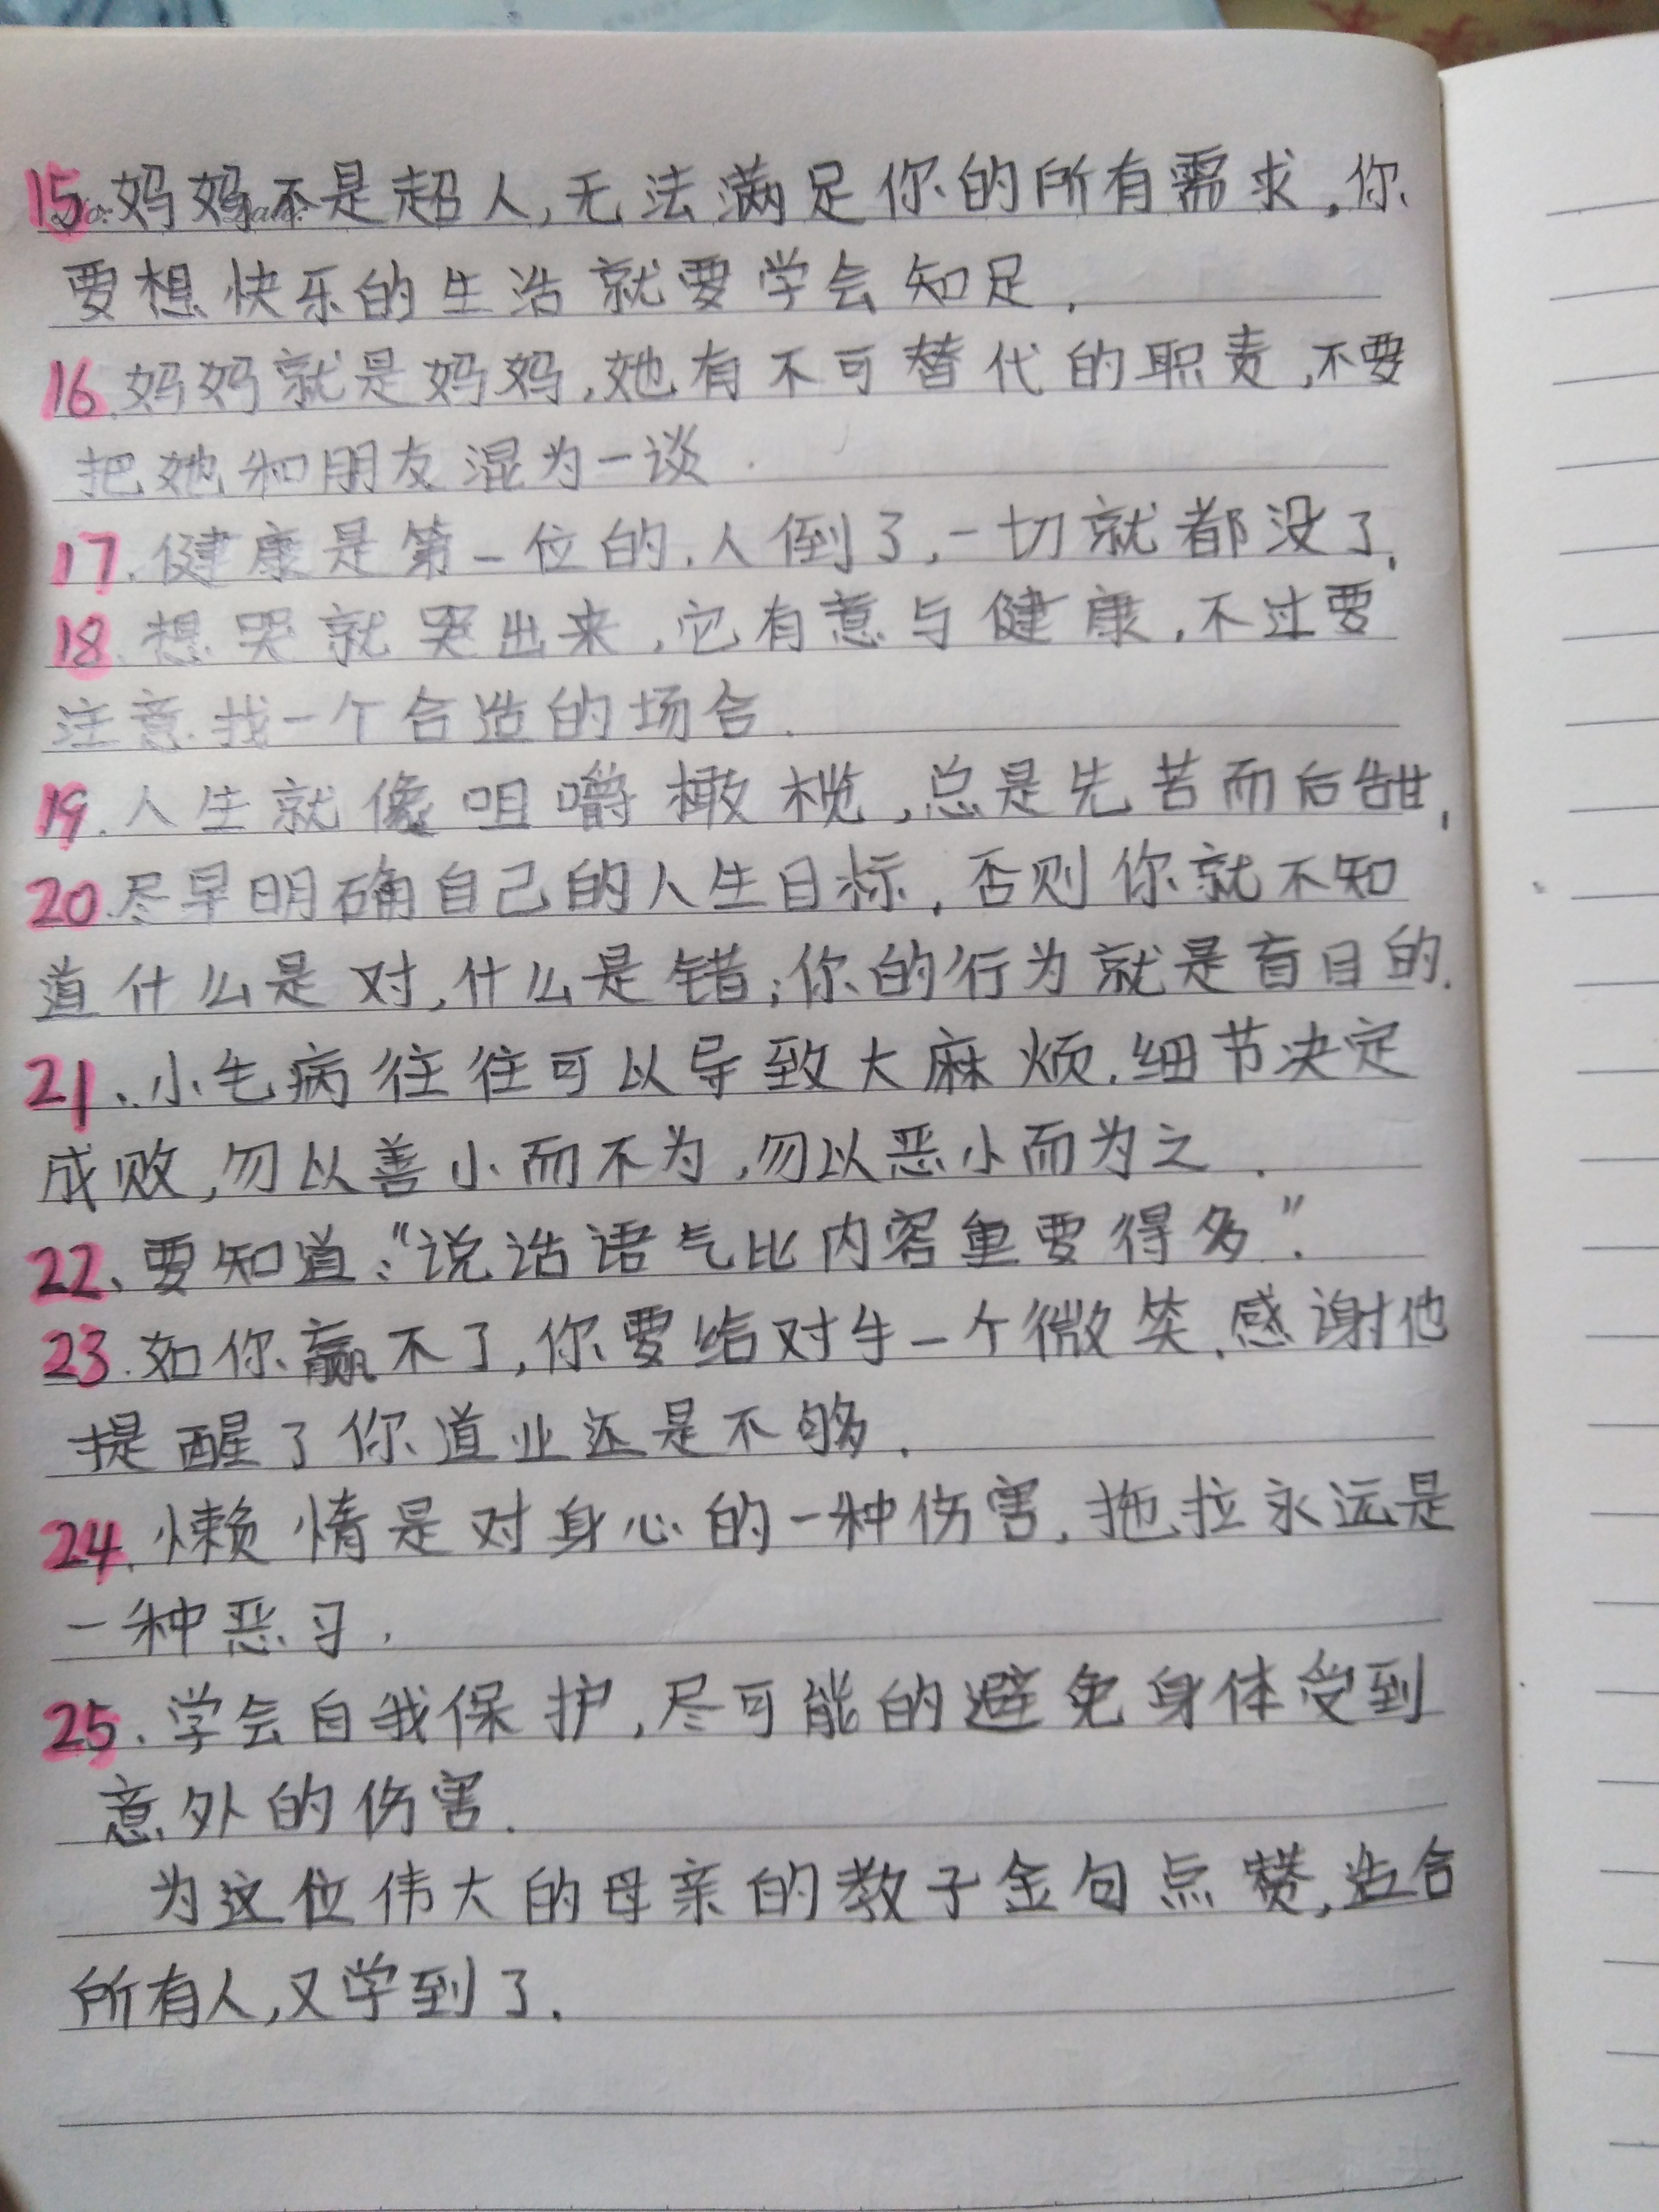 15.妈妈不是超人,无法满足你的所有需求,你
要想快乐的生活就要学会知足.
16.妈妈就是妈妈,她有不可替代的职责,不要
把她和朋友混为一谈.
17.健康是第一位的.人倒了,一切就都没了.
18.想哭就哭出来,它有意与健康,不过要
注意找一个合造的场合.
19.人生就像咀嚼橄榄,总是先苦而后甜.
20.尽早明确自己的人生目标,否则你就不知
道什么是对,什么是错;你的行为就是盲目的.
21、小毛病往往可以导致大麻烦.细节决定
成败,勿以善小而不为,勿以恶小而为之.
22、要知道:"说话语气比内容重要得多".
23.如你赢不了,你要给对牛一个微笑.感谢他
提醒了你道业还是不够.
24.懒惰是对身心的一种伤害.拖拉永远是
一种恶习.
25.学会自我保护,尽可能的避免身体受到
意外的伤害.
为这位伟大的母亲的教子金句点赞,造合
所有人,又学到了.